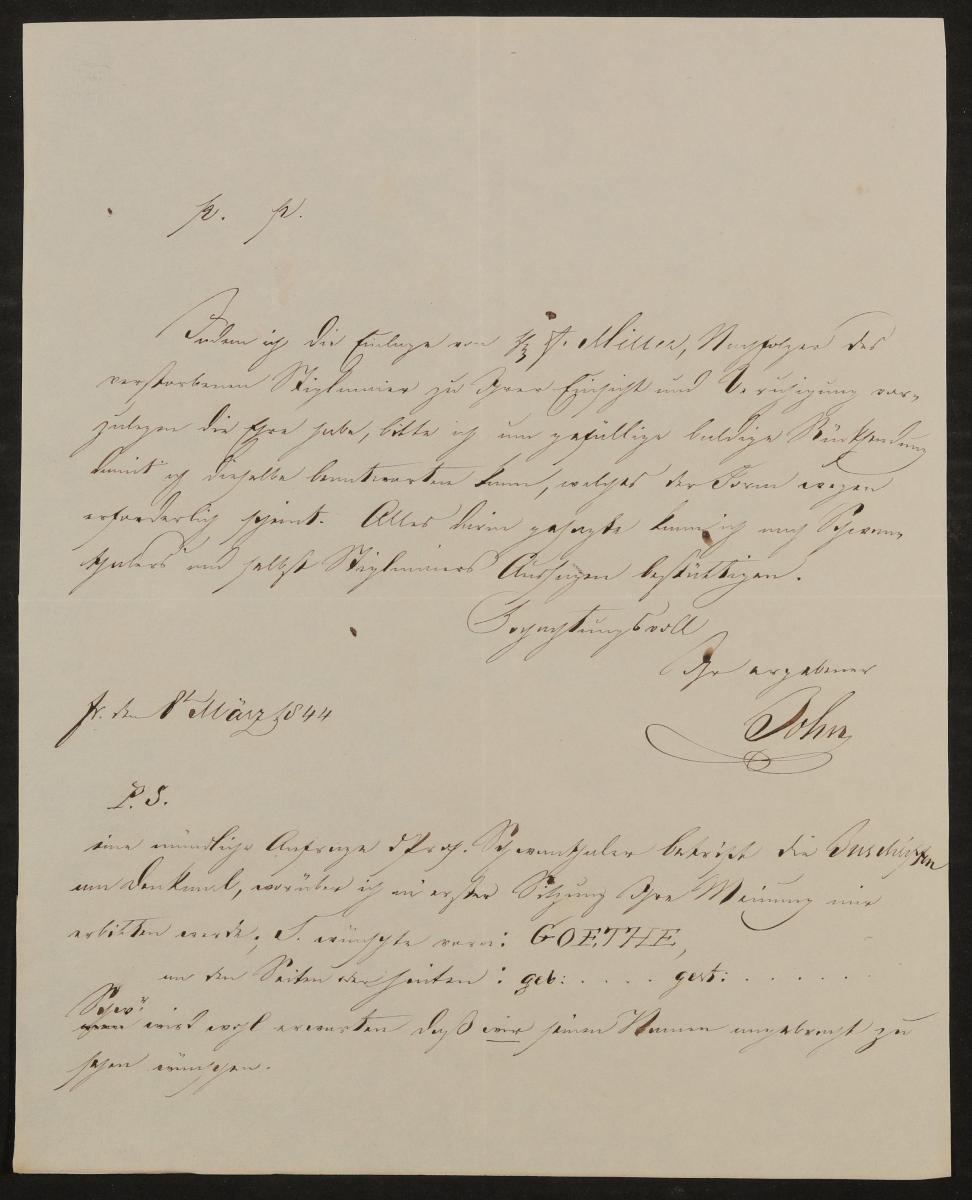 P. P.
Indem ich die Einlage von F. Miller, Nachfolger des
verstorbenen Stiglmaier zu Ihrer Einsicht und Beruhigung vor-
zulegen die Ehre habe, bitte ich um gefällige baldige Rücksendung
damit ich dieselbe beantworten kann, welches der Form wegen
erforderlich scheint. Alles darin gesagte kann ich nach Schwan-
thalers und selbst Stiglmaiers Aussagen bestättigen.
Hochachtungsvoll
Ihr ergebener
John
Fr. den 8t März 1844
P. S.
eine mündliche Anfrage d Prof. Schwanthaler betrifft die Inschriften
am Denkmal, worüber ich in erster Sitzung Ihre Meinung mir
erbitten werde; S. wünschte vorn: GOETHE,
an den Seiten oder hinten: geb: . . . . . gest: . . . . . . .
Schwr wird wohl erwarten daß wir seinen Namen angebracht zu
sehen wünschen.